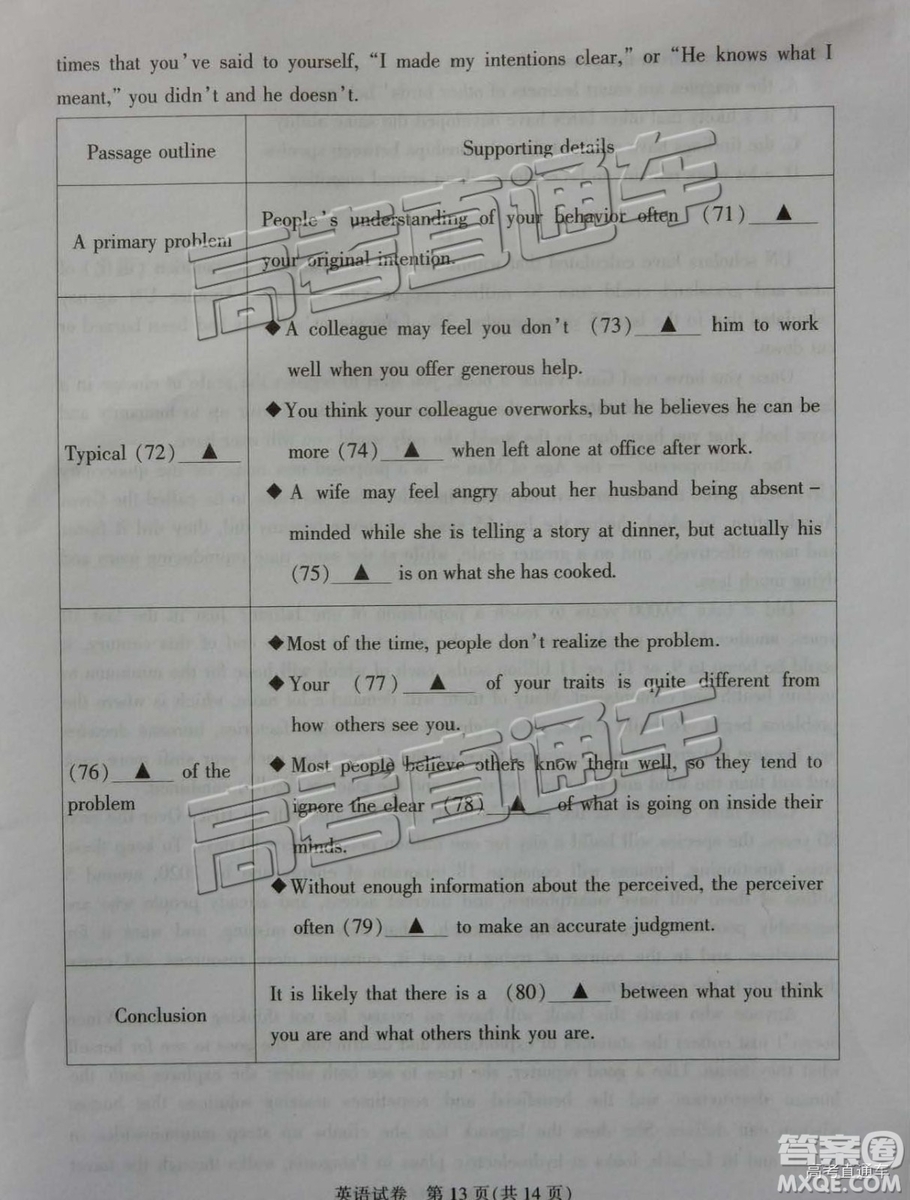 times that you've said to yourself, "I made my intentions clear," or "He knows what I
meant," you didn't and he doesn't.
Passage outline
Supporting details
A primary problem
People's understanding of your behavior often (71) ▲
your original intention.
Typical (72) ▲
◆A colleague may feel you don't (73) ▲ him to work
well when you offer generous help.
◆You think your colleague overworks, but he believes he can be
more (74) ▲ when left alone at office after work.
◆A wife may feel angry about her husband being absent-
minded while she is telling a story at dinner, but actually his
(75) ▲ is on what she has cooked.
(76) ▲ of the
problem
◆Most of the time, people don't realize the problem.
◆Your (77) ▲ of your traits is quite different from
how others see you.
◆Most people believe others know them well, so they tend to
ignore the clear (78) ▲ of what is going on inside their
minds.
◆Without enough information about the perceived, the perceiver
often (79) ▲ to make an accurate judgment.
Conclusion
It is likely that there is a (80) ▲ between what you think
you are and what others think you are.
英语试卷 第 13 页(共 14 页)
高考直通车
高考直通车
答案圈
高考直通车
MXQE.COM